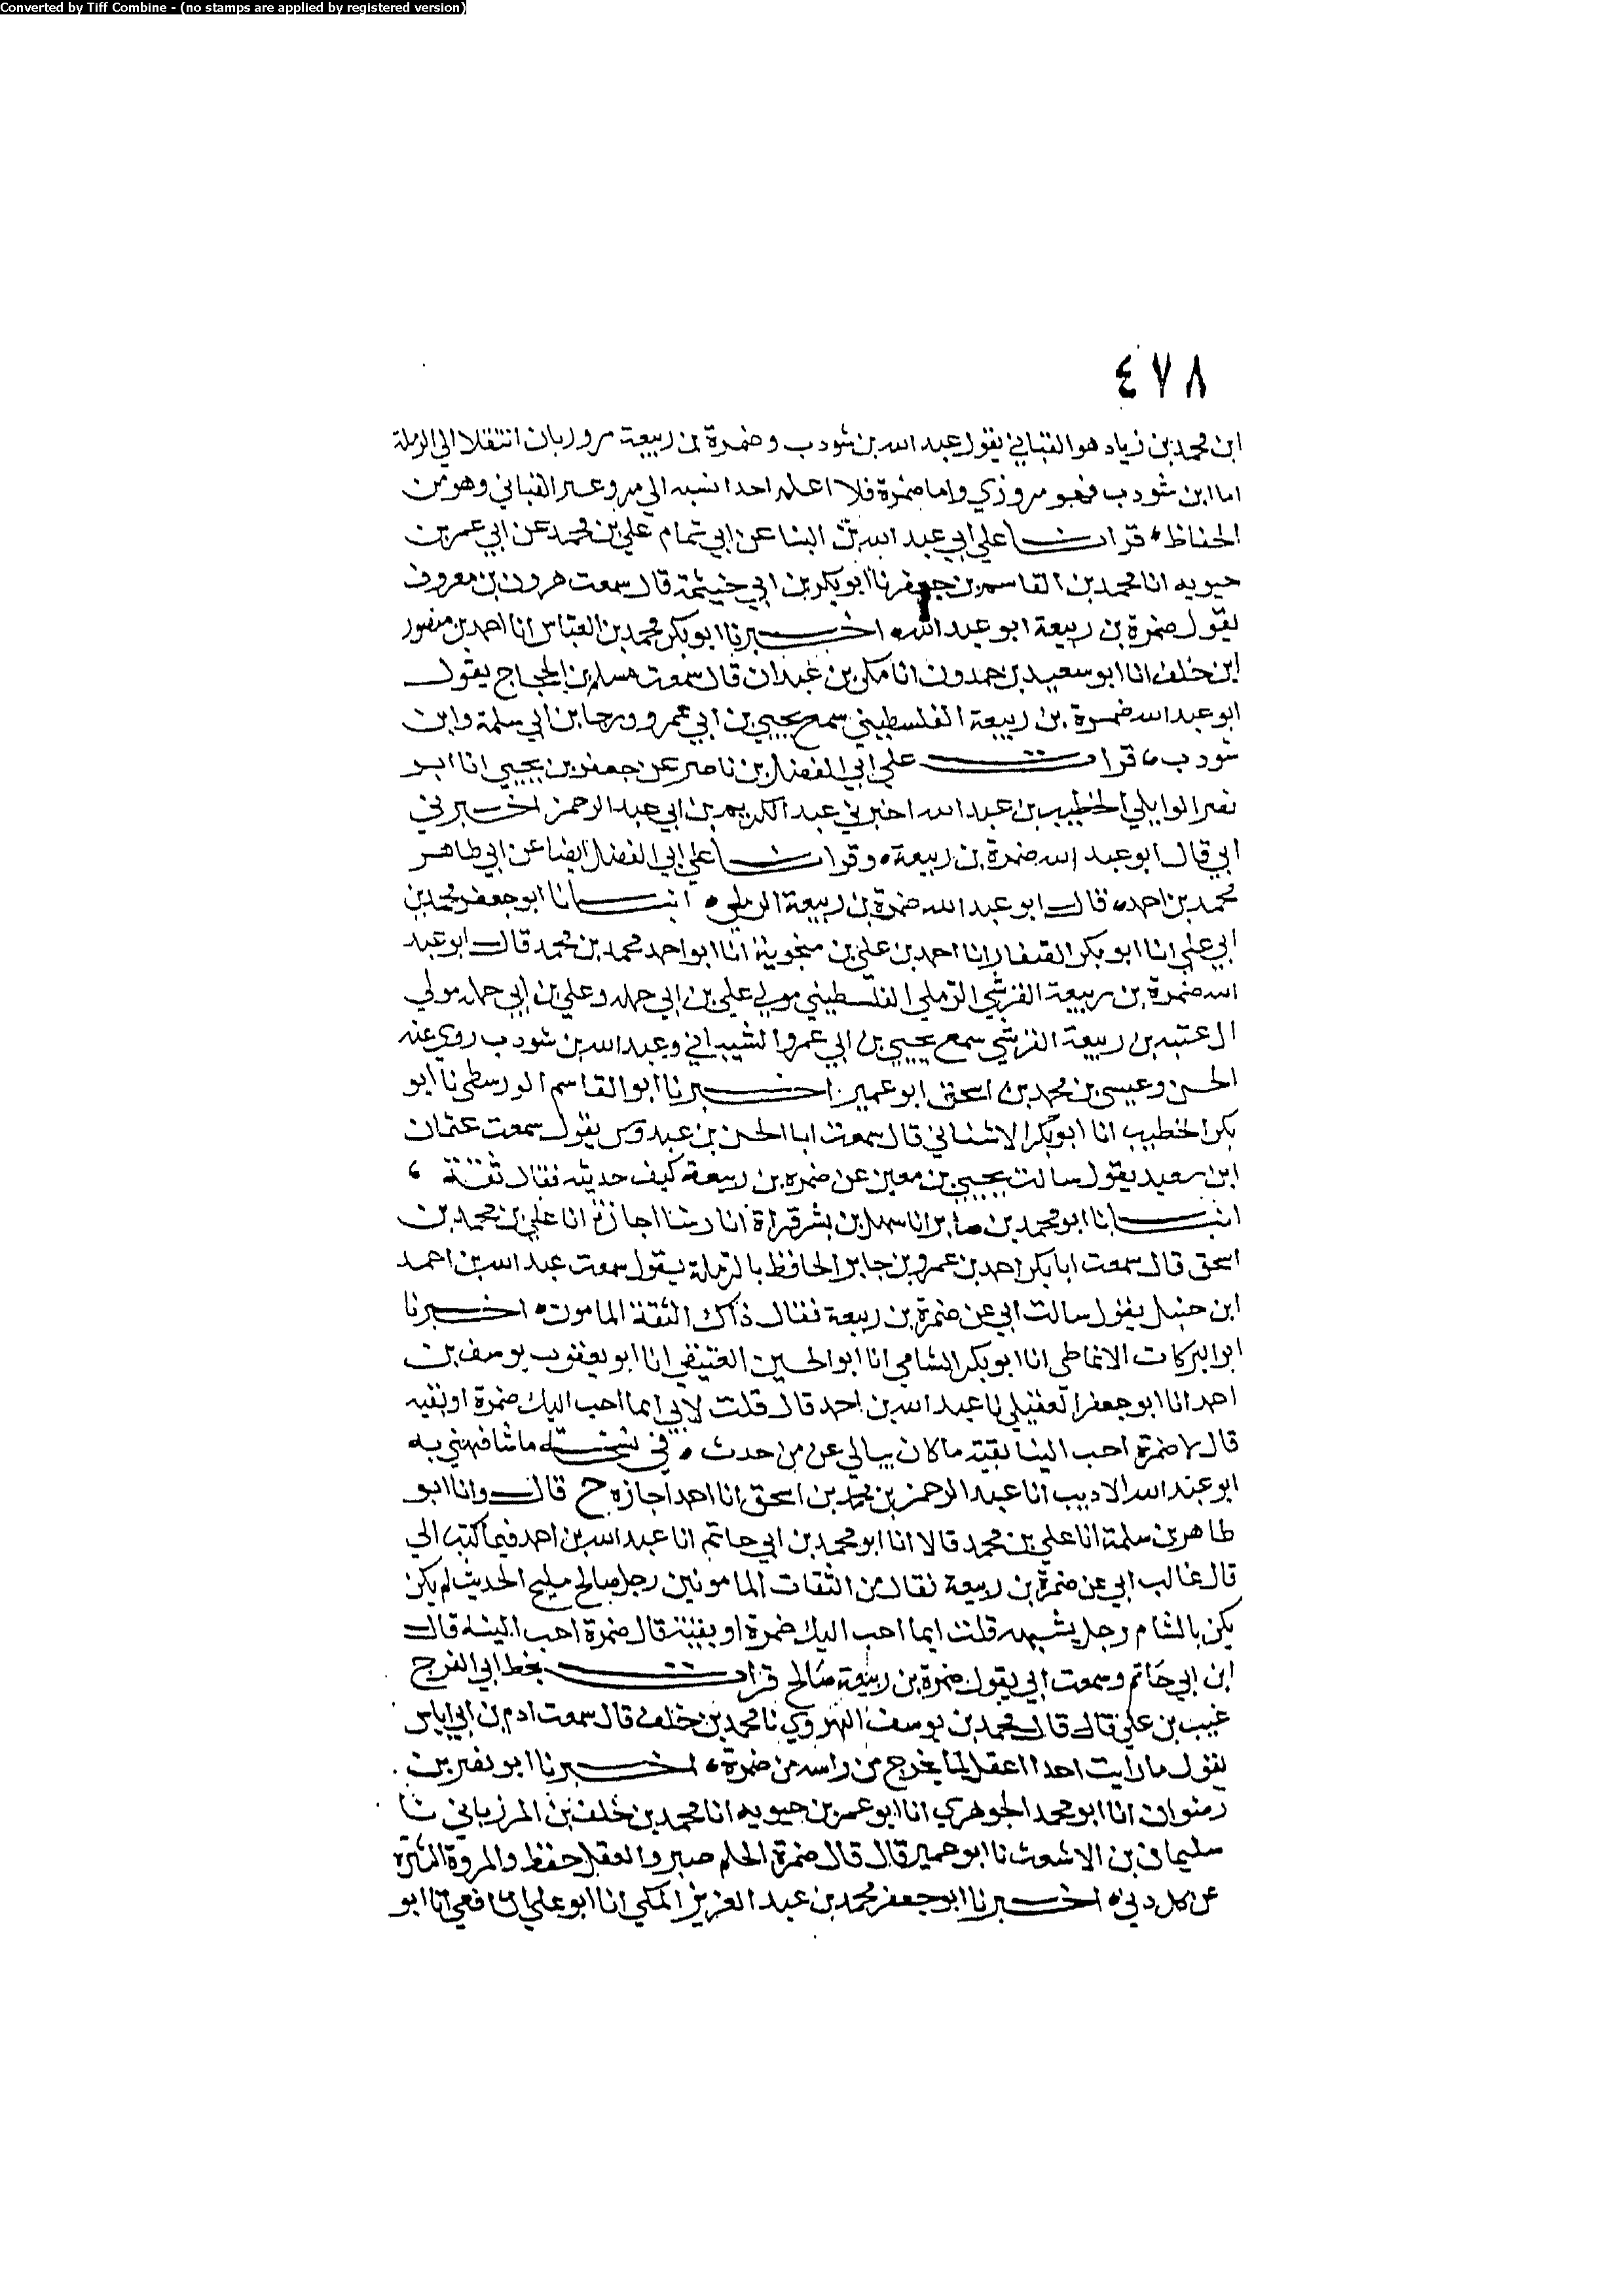 Converted by Tiff Combine - (no stamps are applied by registered version)
٤٧٨
ابن محمد بن زياد هو القباني يقول عبد الله بن شودب وضمرة بن ربيعة مروزيان انتقلا الي الرملة
اما ابن شودب فهو مروزي واما ضمرة فلا اعلم احدا نسبه الي مرو غير القباني وهو من
الحفاظ، قرات علي ابي عبد الله بن البنا عن ابي تمام علي بن محمد عن ابي عمر بن
حيويه انا محمد بن القاسم بن جعفر نا ابو بكر بن ابي خيثمة قال سمعت هرون بن معروف
يقول ضمرة بن ربيعة ابو عبد الله اخبرنا ابو بكر محمد بن العباس انا احمد بن منصور
ابن خلف انا ابو سعيد بن حمدون انا مكي بن عبدان قال سمعت مسلم بن الحجاج يقول
ابو عبد الله ضمرة بن ربيعة الفلسطيني سمع يحيي بن ابي عمرو ورجا بن ابي سلمة وابن
شودب، قرات علي ابي الفضل بن ناصر عن جعفر بن يحيي انا ابو
نصر الوايلي الخطيب بن عبد الله اخبرني عبد الكريم بن ابي عبد الرحمن اخبرني
ابي قال ابو عبد الله ضمرة بن ربيعة، وقرات علي ابي الفضل ايضا عن ابي طاهر
محمد بن احمد، قال ابو عبد الله ضمرة بن ربيعة الرملي، انبانا ابو جعفر محمد بن
ابي علي انا ابو بكر الصفار انا احمد بن علي بن منجوية انا ابو احمد محمد بن محمد قال ابو عبد
الله ضمرة بن ربيعة القرشي الرملي الفلسطيني مولي علي بن ابي حمله وعلي بن ابي حمله مولي
ال عتبه بن ربيعة القرشي سمع يحيي بن ابي عمرو الشيباني وعبد الله بن شودب روي عنه
الحسن وعيسي بن محمد بن اسحق ابو عمير اخبرنا ابو القاسم الورسطي نا ابو
بكر الخطيب انا ابو بكر الاشناني قال سمعت ابا الحسن بن عبدوس يقول سمعت عثمان
ابن سعيد يقول سالت يحيي بن معين عن ضمره بن ربيعة كيف حديثه فقال ثقة،
انبانا ابو محمد بن صابر انا سهل بن بشر قراة انا رشا اجازة انا علي بن محمد بن
اسحق قال سمعت ابا بكر احمد بن عمرو بن جابر الحافظ بالرملة يقول سمعت عبد الله بن احمد
ابن حنبل يقول سالت ابي عن ضمرة بن ربيعة فقال ذاك الثقة المامون، اخبرنا
ابو البركات الانماطي انا ابو بكر الشامي انا ابو الحسين العتيقي انا ابو يعقوب يوسف بن
احمد انا ابو جعفر العقيلي نا عبد الله بن احمد قال قلت لابي ايما احب اليك ضمرة او بقيه
قال لا ضمرة احب الينا بقية ما كان يبالي عن من حدث، في نسخته ما شافهني به
ابو عبد الله الاديب انا عبد الرحمن بن محمد بن اسحق انا احمد اجازه ح قال وانا ابو
طاهر بن سلمة انا علي بن محمد قالا انا ابو محمد بن ابي حاتم انا عبد الله بن احمد فيما كتب الي
قال سالت ابي عن ضمرة بن ربيعة فقال من الثقات المامونين رجل صالح مليح الحديث لم يكن
يكن بالشام رجل يشبهه قلت ايما احب اليك ضمرة او بقية قال ضمرة احب الينا قال
ابن ابي حاتم وسمعت ابي يقول ضمرة بن ربيعة صالح قرات بخط ابي الفرج
غيث بن علي قال قال محمد بن يوسف الهروي نا محمد بن خلف قال سمعت ادم بن ابي اياس
يقول ما رايت احدا اعقل لما يخرج من راسه من ضمرة، اخبرنا ابو نصر بن
رضوان انا ابو محمد الجوهري انا ابو عمر بن حيويه انا محمد بن خلف بن المرزباني نا
سليمان بن الاشعث نا ابو عمير قال قال ضمرة الحلم صبر والعقل حفظ والمروة التنزه
عن كل دني، اخبرنا ابو جعفر محمد بن عبد العزيز المكي انا ابو علي الشافعي انا ابو